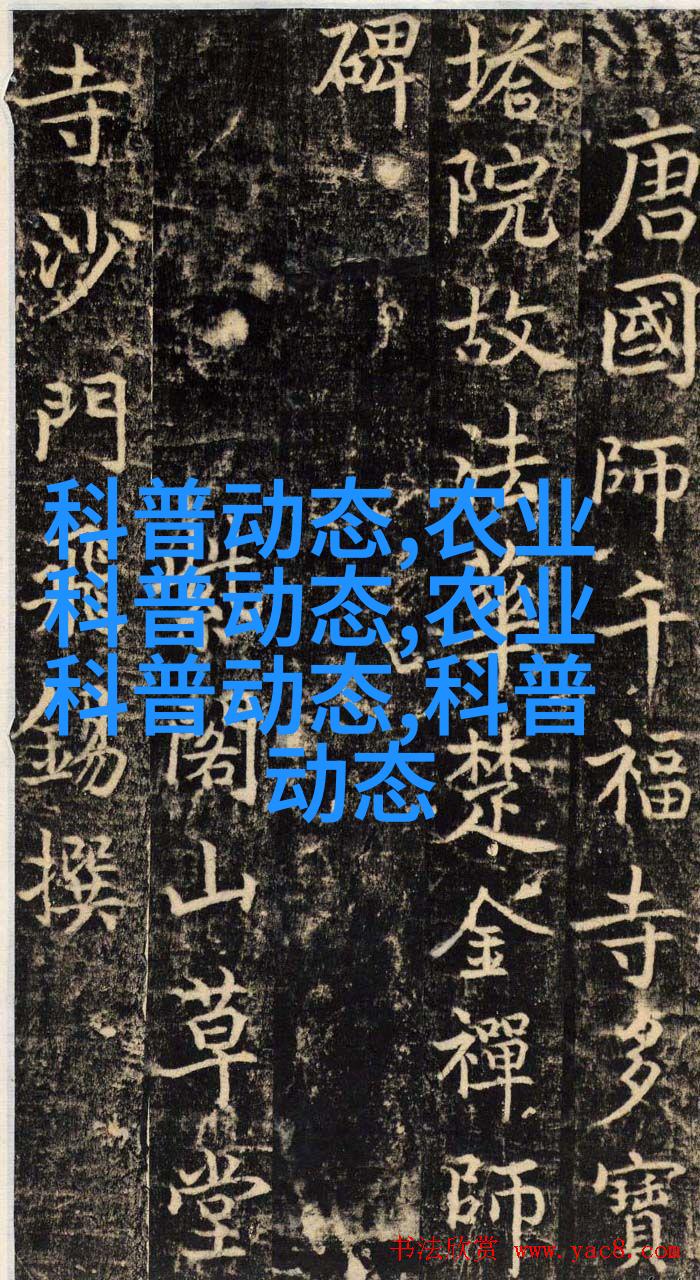 唐國師千福寺多寶
塔院故法華楚金禪師
碑
閣山草堂
寺沙門飛錫撰
科普动态,农业
科普动态,农业
科普动态,科普
动态
书法欣赏 www.yac8.com